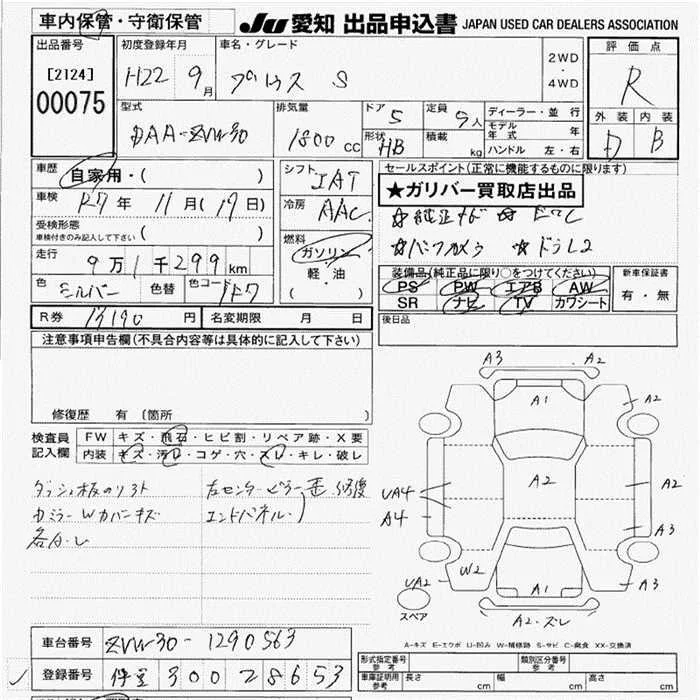 車内保管・守衛保管
JU 愛知 出品申込書 JAPAN USED CAR DEALERS ASSOCIATION
出品番号
[2124]
00075
初度登録年月
H22 9月
車名・グレード
プリウス S
2WD
・
4WD
評価点
R
外装 内装
D B
型式
DAA-ZVW30
排気量
1800 cc
ドア 5
定員 5人
形状 HB
積載 kg
ディーラー・並行
モデル年式 年
ハンドル 左・右
車歴
自家用・( )
車検 R7年 11月(19日)
受検形態
車検付きのみ記入して下さい ( )
走行
9万1千299km
色 シルバー 色替 色コード 1F7
シフト IAT
冷房 AAC
燃料
ガソリン
軽・油
( )
セールスポイント(正常に機能するものに限ります)
★ガリバー買取店出品
☆純正ナビ ☆
☆バックカメラ ☆ドラレコ
装備品(純正品に限り○をつけてください)
PS PW エアB AW
SR ナビ TV カワシート
新車保証書
有・無
R券 13190円 名変期限 月 日
後日品
注意事項申告欄(不具合内容等は具体的に記入して下さい)
修復歴 有 〔箇所 〕
検査員
記入欄
FW キズ・飛石・ヒビ割・リペア跡・X要
内装 キズ・汚レ・コゲ・穴・スレ・キレ・破レ
左センターピラー 修復
カミラーWカバーキズ エンドパネル
各A・U
A3 A2
A1
A2
A2
A2
UA4
A4
A3
W2
A3
UA2
A1
スペア
A2・ズレ
A-キズ E-エクボ U-凹み W-補修跡 S-サビ C-腐食 XX-交換済
車台番号 ZVW30-1290563
登録番号 300 28653
形式指定番号 参考
類別区分番号 参考
車庫証明用 参考 長さ cm 幅 cm 高さ cm